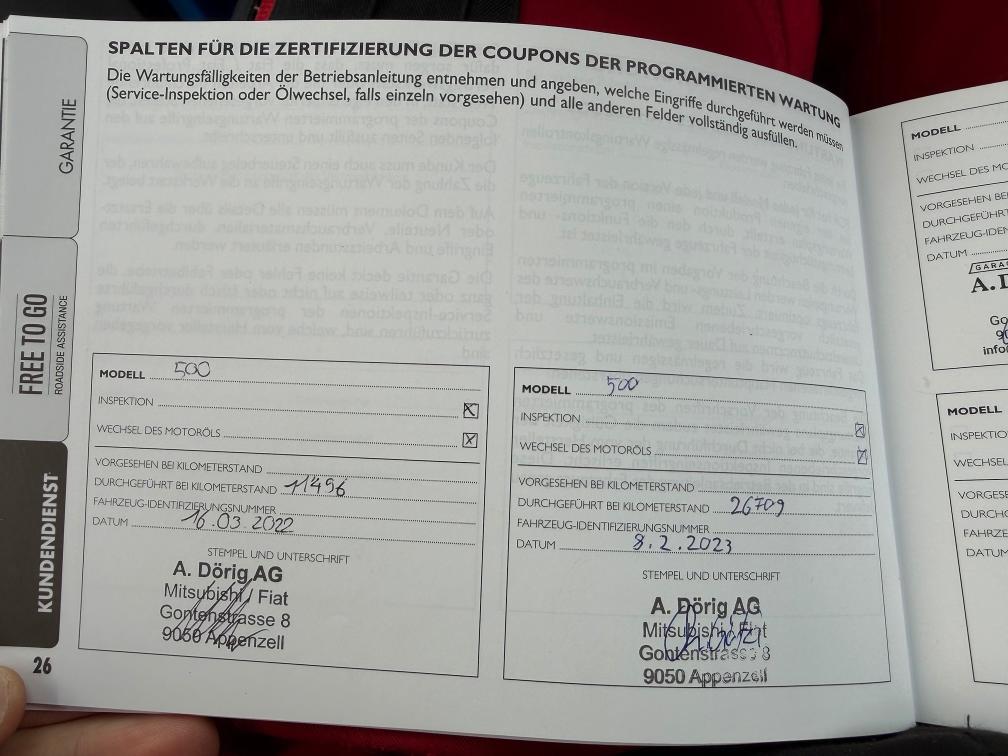 SPALTEN FÜR DIE ZERTIFIZIERUNG DER COUPONS DER PROGRAMMIERTEN WARTUNG
Die Wartungsfälligkeiten der Betriebsanleitung entnehmen und angeben, welche Eingriffe durchgeführt werden müssen
(Service-Inspektion oder Ölwechsel, falls einzeln vorgesehen) und alle anderen Felder vollständig ausfüllen.
GARANTIE
FREE TO GO
ROADSIDE ASSISTANCE
KUNDENDIENST
26
MODELL 500
INSPEKTION X
WECHSEL DES MOTORÖLS X
VORGESEHEN BEI KILOMETERSTAND
DURCHGEFÜHRT BEI KILOMETERSTAND 11496
FAHRZEUG-IDENTIFIZIERUNGSNUMMER
DATUM 16.03.2022
STEMPEL UND UNTERSCHRIFT
A. Dörig AG
Mitsubishi / Fiat
Gontenstrasse 8
9050 Appenzell
MODELL 500
INSPEKTION X
WECHSEL DES MOTORÖLS X
VORGESEHEN BEI KILOMETERSTAND
DURCHGEFÜHRT BEI KILOMETERSTAND 26709
FAHRZEUG-IDENTIFIZIERUNGSNUMMER
DATUM 8.2.2023
STEMPEL UND UNTERSCHRIFT
A. Dörig AG
Mitsubishi / Fiat
Gontenstrasse 8
9050 Appenzell
MODELL
INSPEKTION
WECHSEL DES MO
VORGESEHEN BEI
DURCHGEFÜHRT
FAHRZEUG-IDEN
DATUM
GARA
A. D
Go
info
MODELL
INSPEKTIO
WECHSEL
VORGESE
DURCHG
FAHRZE
DATUM